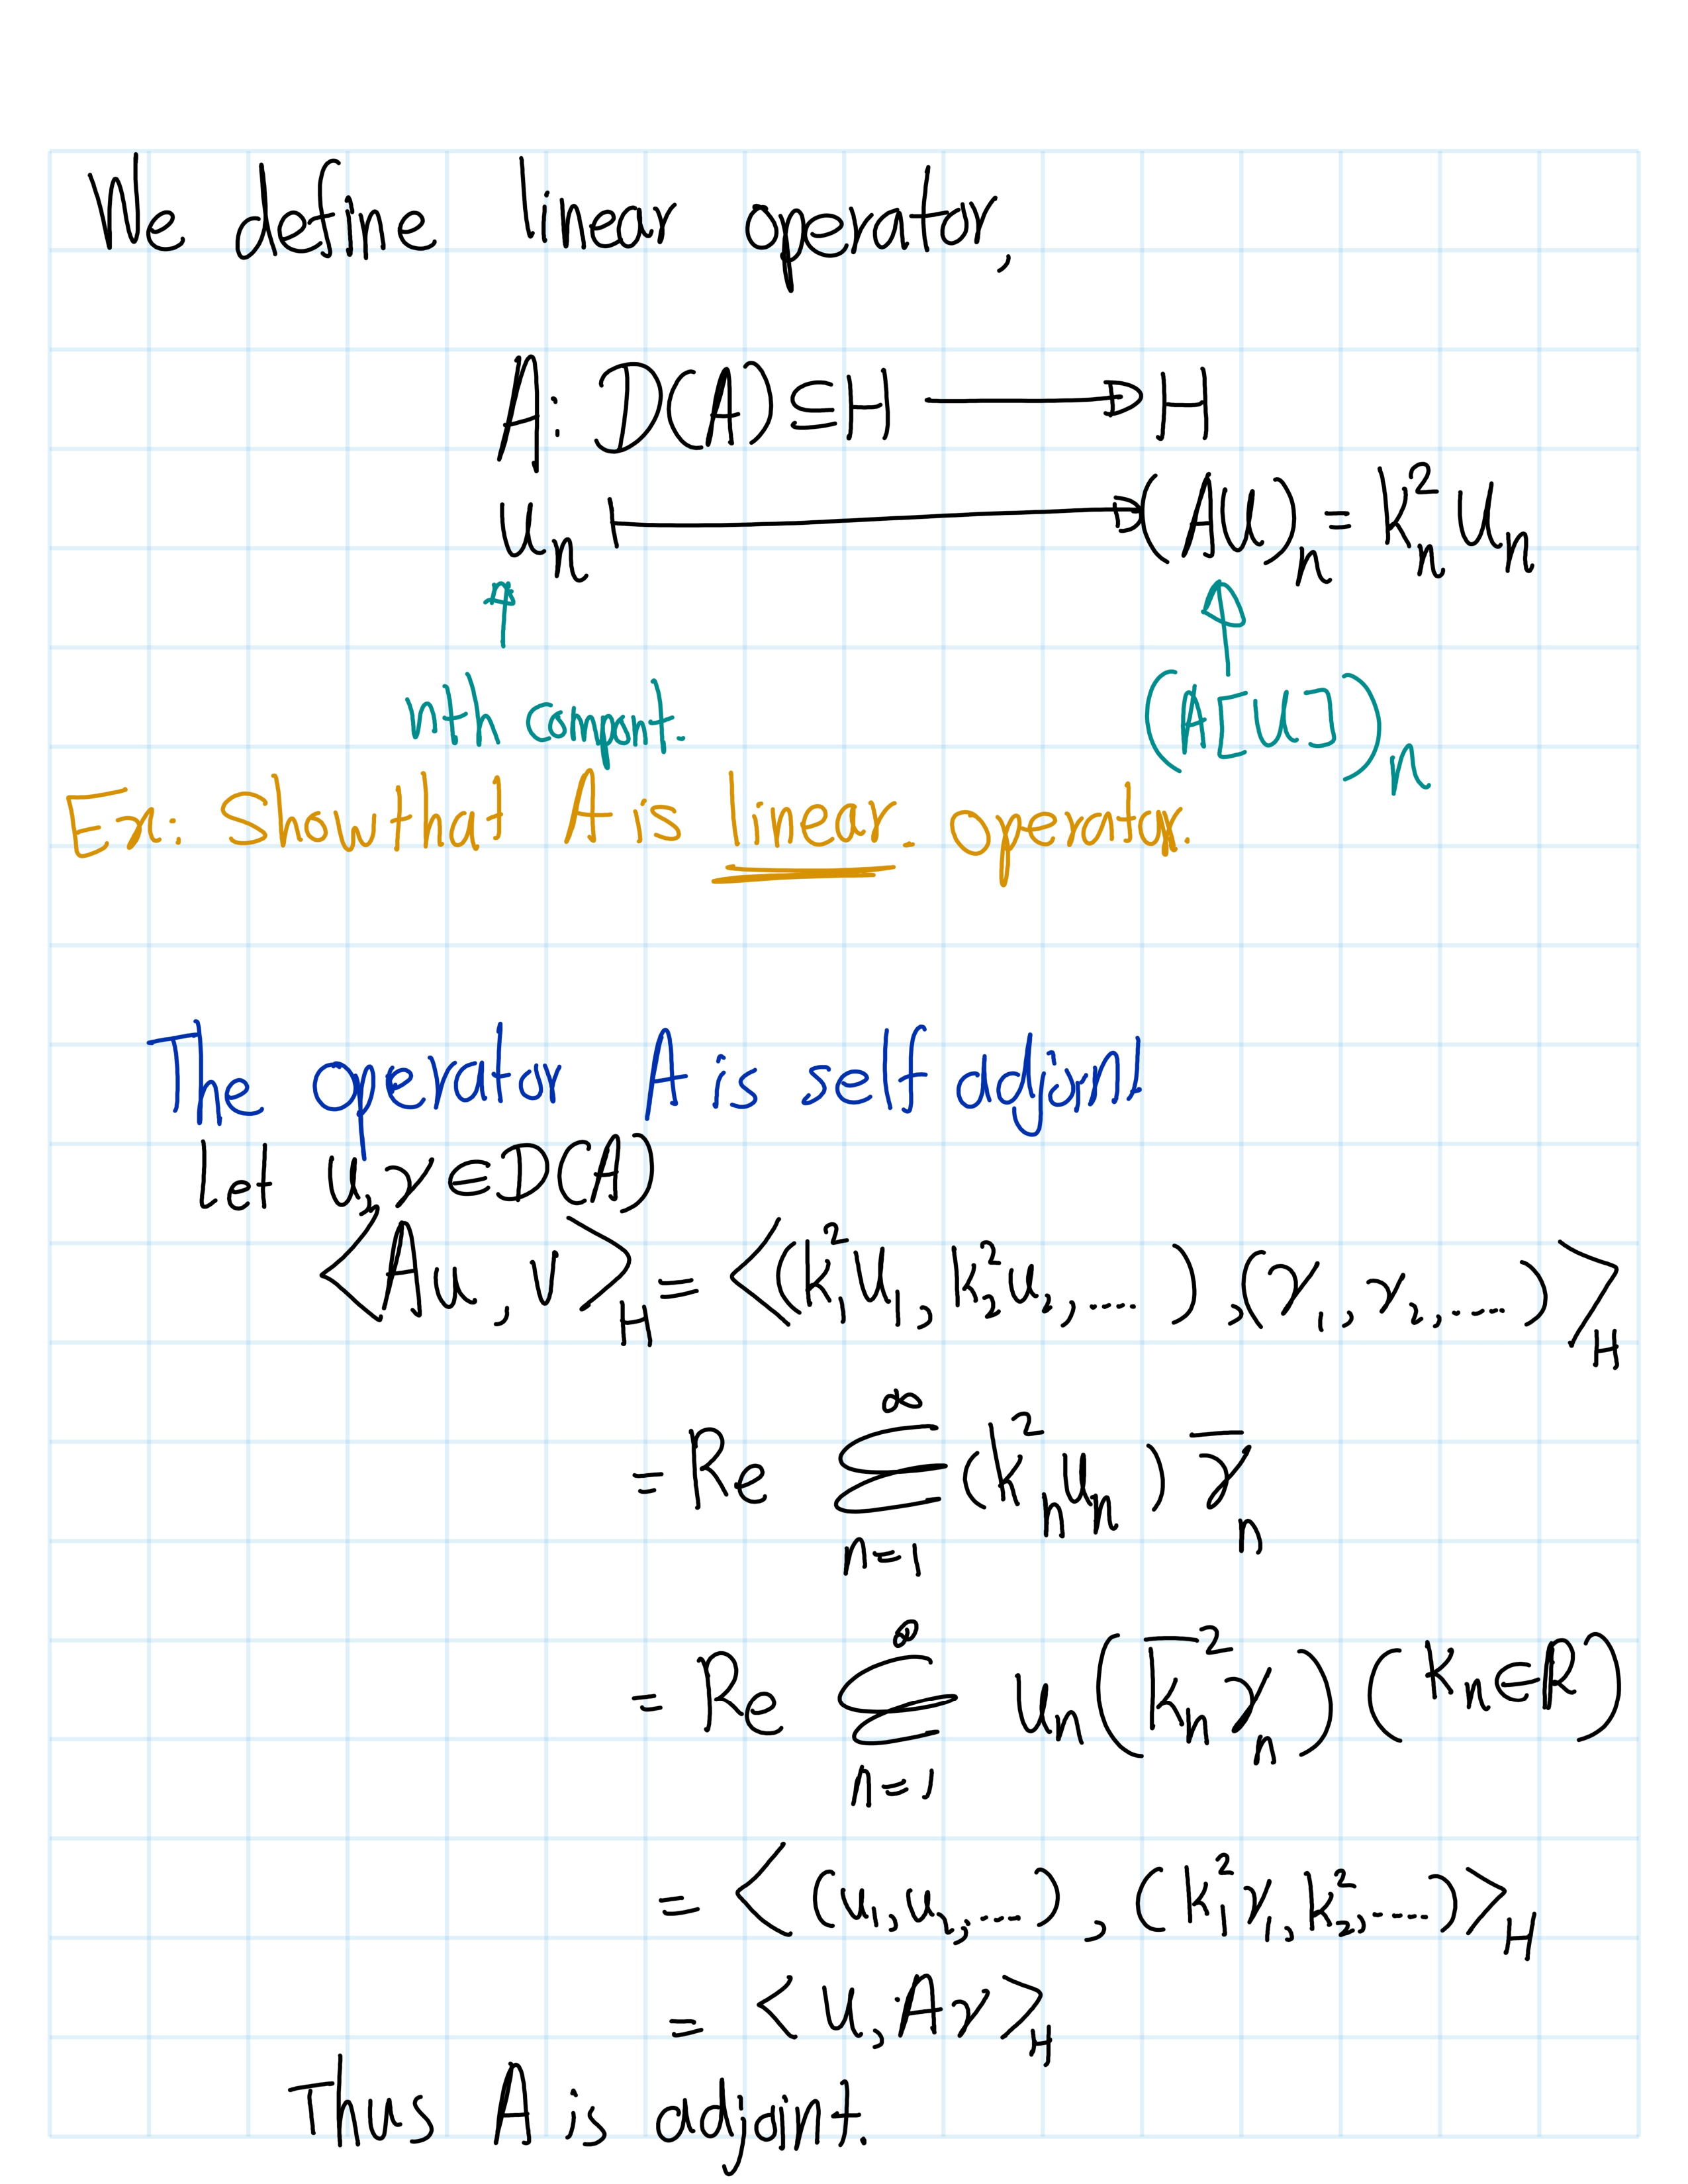 We define linear operator,
A: D(A) ⊆ H ⟶ H
u_n ⟼ (Au)_n = k_n^2 u_n
nth compnt. (A[u])_n
Ex: Show that A is linear operator.
The operator A is self adjoint
Let u, v ∈ D(A)
<Au, v>_H = <(k_1^2 u_1, k_2^2 u_2, ....), (v_1, v_2, ....)>_H
= Re ∑_{n=1}^{∞} (k_n^2 u_n) \overline{v}_n
= Re ∑_{n=1}^{∞} u_n (\overline{k_n^2 v_n}) (k_n ∈ R)
= <(u_1, u_2, ....), (k_1^2 v_1, k_2^2, ....)>_H
= <u, Av>_H
Thus A is adjoint.